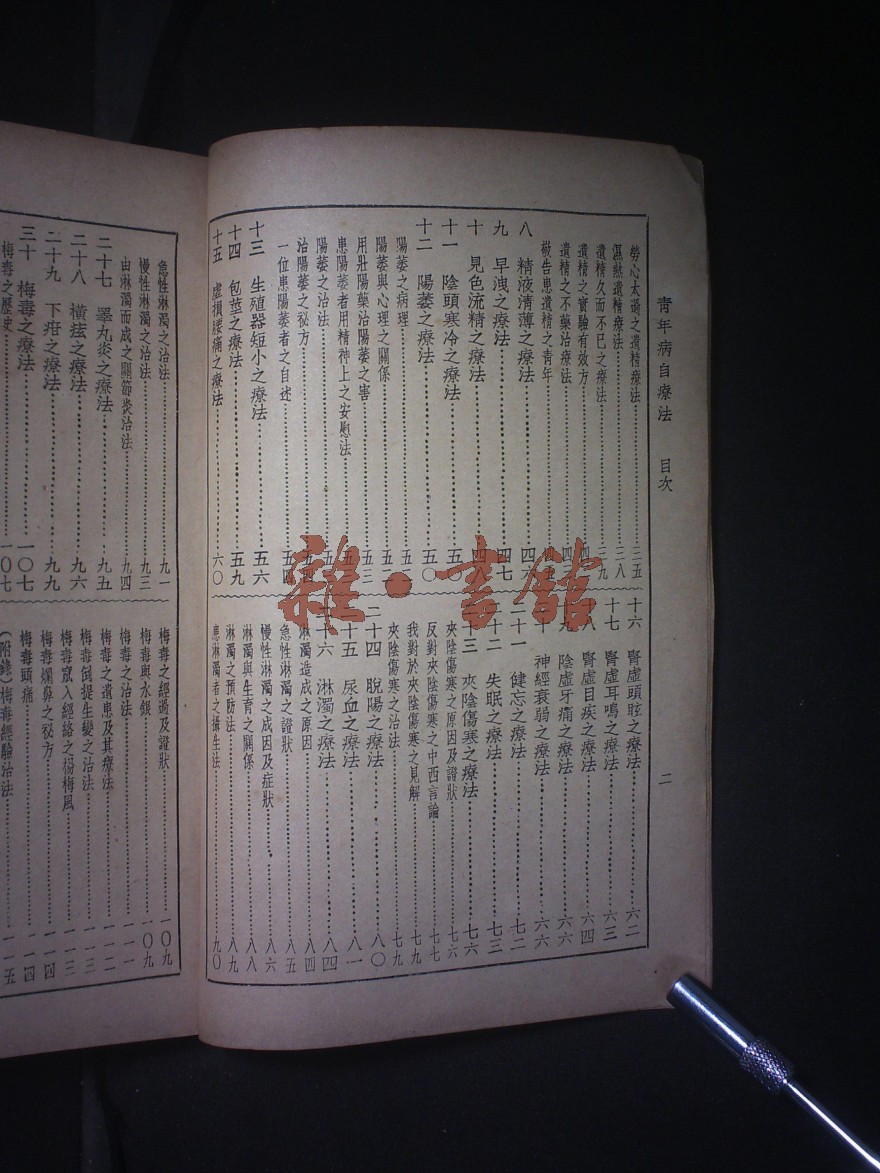 青年病自療法　目次　二
勞心太過之遺精療法…………三五
濕熱遺精療法…………三八
遺精久而不已之療法…………三九
遺精之實驗有效方…………
遺精之不藥治療法…………
敬告患遺精之青年…………
八　精液清薄之療法…………四六
九　早洩之療法…………四七
十　見色流精之療法…………四八
十一　陰頭寒冷之療法…………五〇
十二　陽萎之療法…………五〇
陽萎之病理…………
陽萎與心理之關係…………
用壯陽藥治陽萎之害…………五三
患陽萎者用精神上之安慰法…………
陽萎之治法…………
治陽萎之秘方…………
一位患陽萎者之自述…………五四
十三　生殖器短小之療法…………五六
十四　包莖之療法…………五九
十五　虛損腰痛之療法…………六〇
十六　腎虛頭眩之療法…………六二
十七　腎虛耳鳴之療法…………六三
十八　腎虛目疾之療法…………六四
陰虛牙痛之療法…………六六
神經衰弱之療法…………六六
二十一　健忘之療法…………七二
十二　失眠之療法…………七三
十三　夾陰傷寒之療法…………七六
夾陰傷寒之原因及證狀…………七六
反對夾陰傷寒之中西言論…………七七
我對於夾陰傷寒之見解…………七九
夾陰傷寒之治法…………七九
二十四　脫陽之療法…………八〇
十五　尿血之療法…………八一
十六　淋濁之療法…………八四
淋濁造成之原因…………八四
急性淋濁之證狀…………八五
慢性淋濁之成因及症狀…………八六
淋濁與生育之關係…………八八
淋濁之預防法…………八九
患淋濁者之攝生法…………九〇
急性淋濁之治法…………九一
慢性淋濁之治法…………九三
由淋濁而成之關節炎治法…………九四
二十七　睪丸炎之療法…………九五
二十八　橫痃之療法…………九六
二十九　下疳之療法…………九九
三十　梅毒之療法…………一〇七
梅毒之歷史…………一〇七
梅毒之經過及證狀…………一〇九
梅毒與水銀…………一〇九
梅毒之治法…………一一一
梅毒之遺患及其療法…………一一二
梅毒倒提生變之治法…………一一三
梅毒竄入經絡之楊梅風…………一一三
梅毒爛鼻之秘方…………一一四
梅毒頭痛…………一一四
（附錄）梅毒經驗治法…………一一五
雜·書館